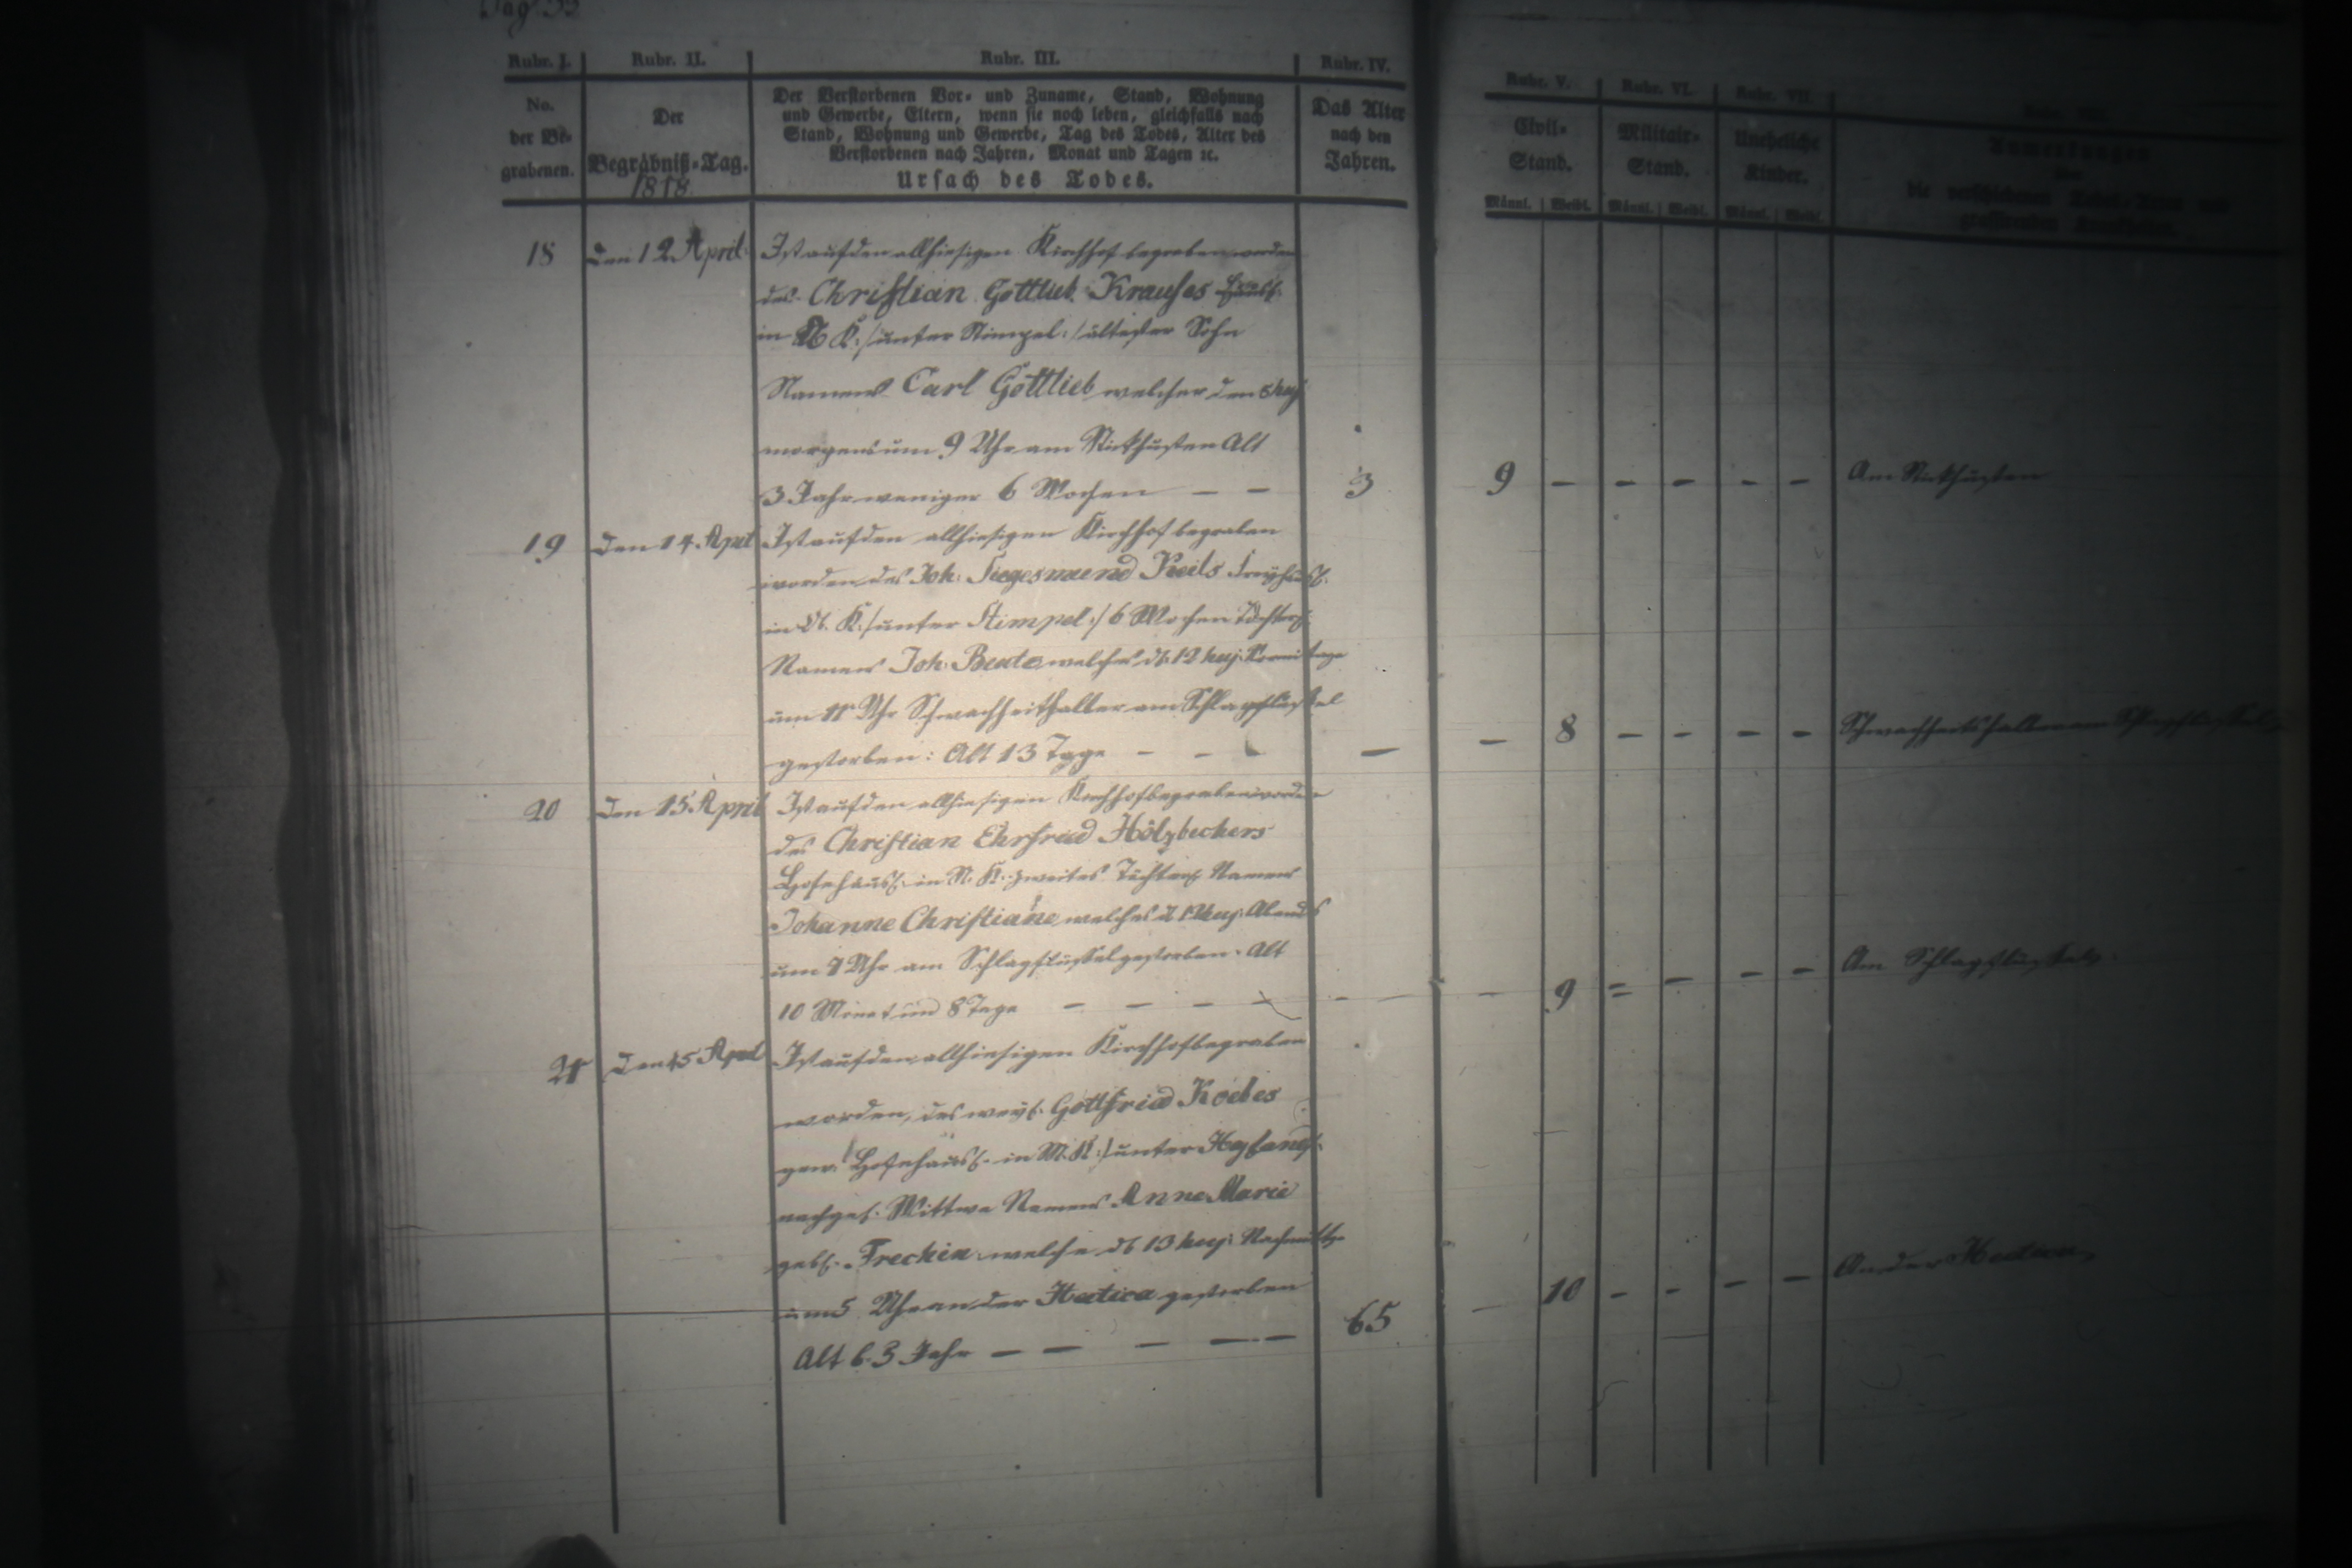 Pag. 33
Rubr. I. Rubr. II. Rubr. III. Rubr. IV. Rubr. V. Rubr. VI. Rubr. VII.
No. der Be-grabenen.
Der Begräbniß-Tag.
1818.
Der Verstorbenen Vor- und Zuname, Stand, Wohnung
und Gewerbe, Eltern, wenn sie noch leben, gleichfalls nach
Stand, Wohnung und Gewerbe, Tag des Todes, Alter des
Verstorbenen nach Jahren, Monat und Tagen ꝛc.
Ursach des Todes.
Das Alter nach den Jahren.
Civil-Stand.
Militair-Stand.
Uneheliche Kinder.
Anmerkungen
Männl. Weibl. Männl. Weibl. Männl. Weibl.
18 den 12. April. Ist auf den allhiesigen Kirchhof begraben worden
des Christian Gottlieb Krauses
in K: /unter Stimpel:/ ältester Sohn
Namens Carl Gottlieb welcher den 8 huj
morgens um 9 Uhr am Stickhusten Alt
3 Jahr weniger 6 Wochen – – 3 9 – – – – – Am Stickhusten
19 den 14. April Ist auf den allhiesigen Kirchhof begraben
worden des Joh: Siegesmund Keils Freyhäusl.
in K: /unter Stimpel:/ 6 Wochen Töchterl.
Namens Joh: Beate welches d. 12 huj. Vormittags
um 11 Uhr Schwachheithalber am Schlagflüssel
gestorben: Alt 13 Tage – – – – 8 – – – – Schwachheitshalber am Schlagflüssel
20 den 15. April Ist auf den allhiesigen Kirchhof begraben worden
des Christian Ehrfried Hölzbechers
Hofehäusl. in N. K. zweites Töchterl. Namens
Johanne Christiane welches d 12 huj: Abends
um Uhr am Schlagflüssel gestorben. Alt
10 Monat und 8 Tage – – – – – – 9 = – – – Am Schlagflüssel
21 den 15 April Ist auf den allhiesigen Kirchhof begraben
worden, des weyl. Gottfried
gew. Hofehäusl. in M. K: /unter
nachgel. Wittwe Namens Anne Marie
gebl. Frechin welche d. 13 huj: Nachmittgs
um 5 Uhr an der Hectica gestorben
Alt 63 Jahr – – – – – 65 – 10 – – – – An der Hectica